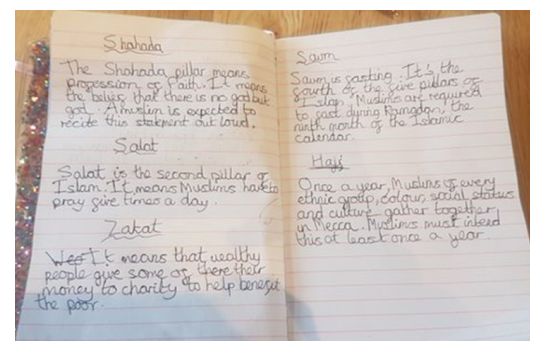 Shahada
The Shahada pillar means
profession of faith. It means
the belief that there is no god but
god. A muslim is expected to
recite this statement out loud.
Salat
Salat is the second pillar of
Islam. It means Muslims have to
pray five times a day.
Zakat
It means that wealthy
people give some of there their
money to charity to help benefit
the poor.
Sawm
Sawm is fasting. It's the
fourth of the five pillars of
Islam. Muslims are required
to fast during Ramadan, the
ninth month of the Islamic
calendar.
Hajj
Once a year, Muslims of every
ethnic group, colour, social status
and culture gather together
in Mecca. Muslims must
this at least once a year.